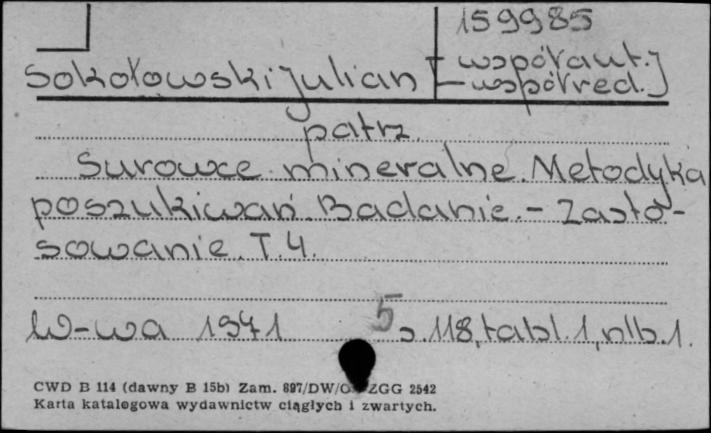 159985
Sokołowski Julian [-współaut.]
-współred.]
patrz
Surowce mineralne. Metodyka
poszukiwań. Badanie. - Zasto-
sowanie. T. 4.
W-wa 1971 5 s. 118, tabl. 1, nlb. 1.
CWD B 114 (dawny B 15b) Zam. 897/DW/O ZGG 2542
Karta katalogowa wydawnictw ciągłych i zwartych.